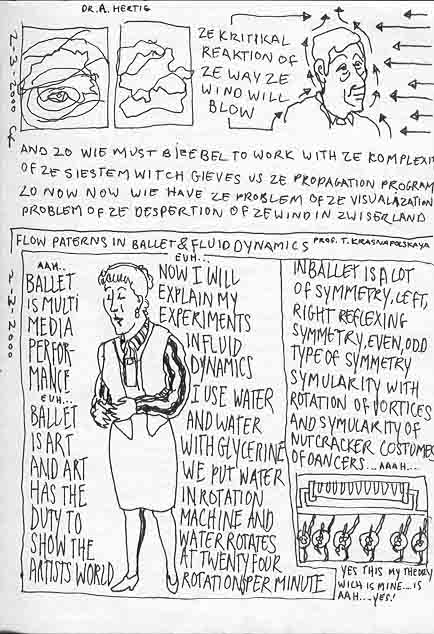 DR. A. HERTIG
2-3-2000
ZE KRITIKAL
REAKTION OF
ZE WAY ZE
WIND WILL
BLOW
AND ZO WIE MUST BIEEBEL TO WORK WITH ZE KOMPLEXI
OF ZE SIESTEM WITCH GIEVES US ZE PROPAGATION PROGRAM
ZO NOW NOW WIE HAVE ZE PROBLEM OF ZE VISUALAZATION
PROBLEM OF ZE DESPERTION OF ZE WIND IN ZWISERLAND
FLOW PATERNS IN BALLET & FLUID DYNAMICS PROF. T. KRASNAPOLSKAYA
2-3-2000
AAH...
BALLET
IS MULTI
MEDIA
PERFOR-
MANCE
EUH...
BALLET
IS ART
AND ART
HAS THE
DUTY TO
SHOW THE
ARTISTS WORLD
EUH...
NOW I WILL
EXPLAIN MY
EXPERIMENTS
IN FLUID
DYNAMICS
I USE WATER
AND WATER
WITH GLYCERINE
WE PUT WATER
IN ROTATION
MACHINE AND
WATER ROTATES
AT TWENTY FOUR
ROTATIONS PER MINUTE
IN BALLET IS A LOT
OF SYMMETRY, LEFT,
RIGHT REFLEXING
SYMMETRY, EVEN, ODD
TYPE OF SYMMETRY
SYMULARITY WITH
ROTATION OF VORTICES
AND SYMULARITY OF
NUTCRACKER COSTUMES
OF DANCERS... AAAH...
YES THIS MY THEORY
WICH IS MINE... IS
AAH... YES!